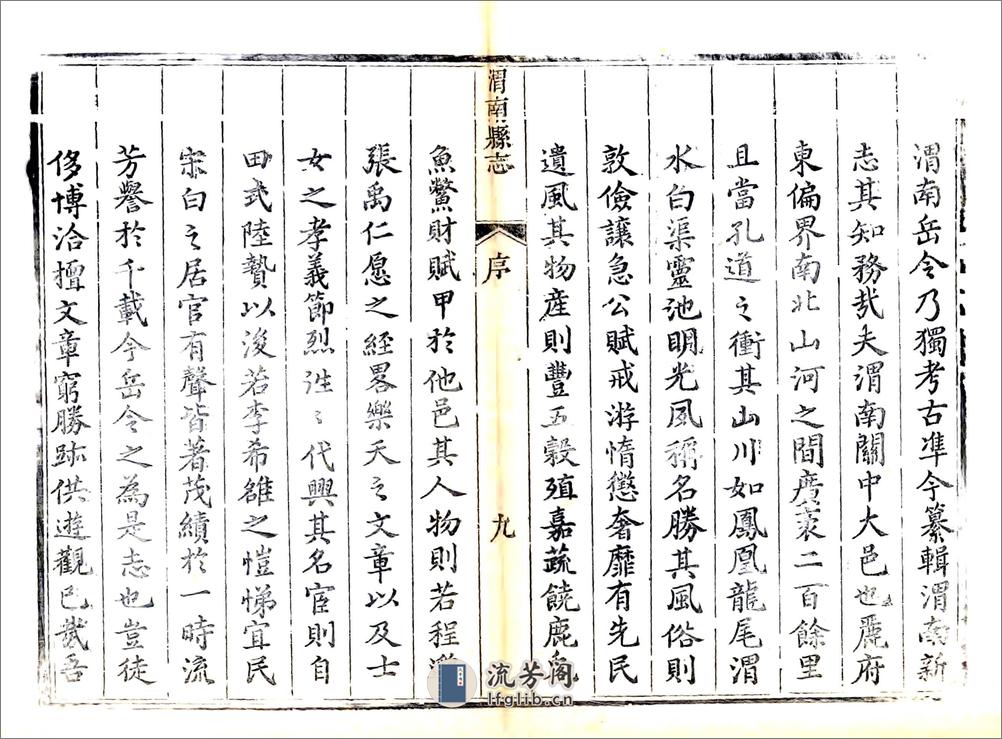 渭南岳令乃獨考古準今纂輯渭南新
志其知務哉夫渭南關中大邑也麗府
東偏界南北山河之間廣袤二百餘里
且當孔道之衝其山川如鳳凰龍尾渭
水白渠靈池明光夙稱名勝其風俗則
敦儉讓急公賦戒游惰懲奢靡有先民
遺風其物産則豐五穀殖嘉蔬饒鹿豕
渭南縣志
序
九
魚鱉財賦甲於他邑其人物則若程邈
張禹仁愿之經畧樂天之文章以及士
女之孝義節烈往々代興其名宦則自
田式陸贄以浚若李希雒之愷悌宜民
宋白之居官有聲皆著茂績於一時流
芳譽於千載今岳令之為是志也豈徒
侈博洽擅文章窮勝跡供遊觀已哉吾
流芳阁
lfglib.cn